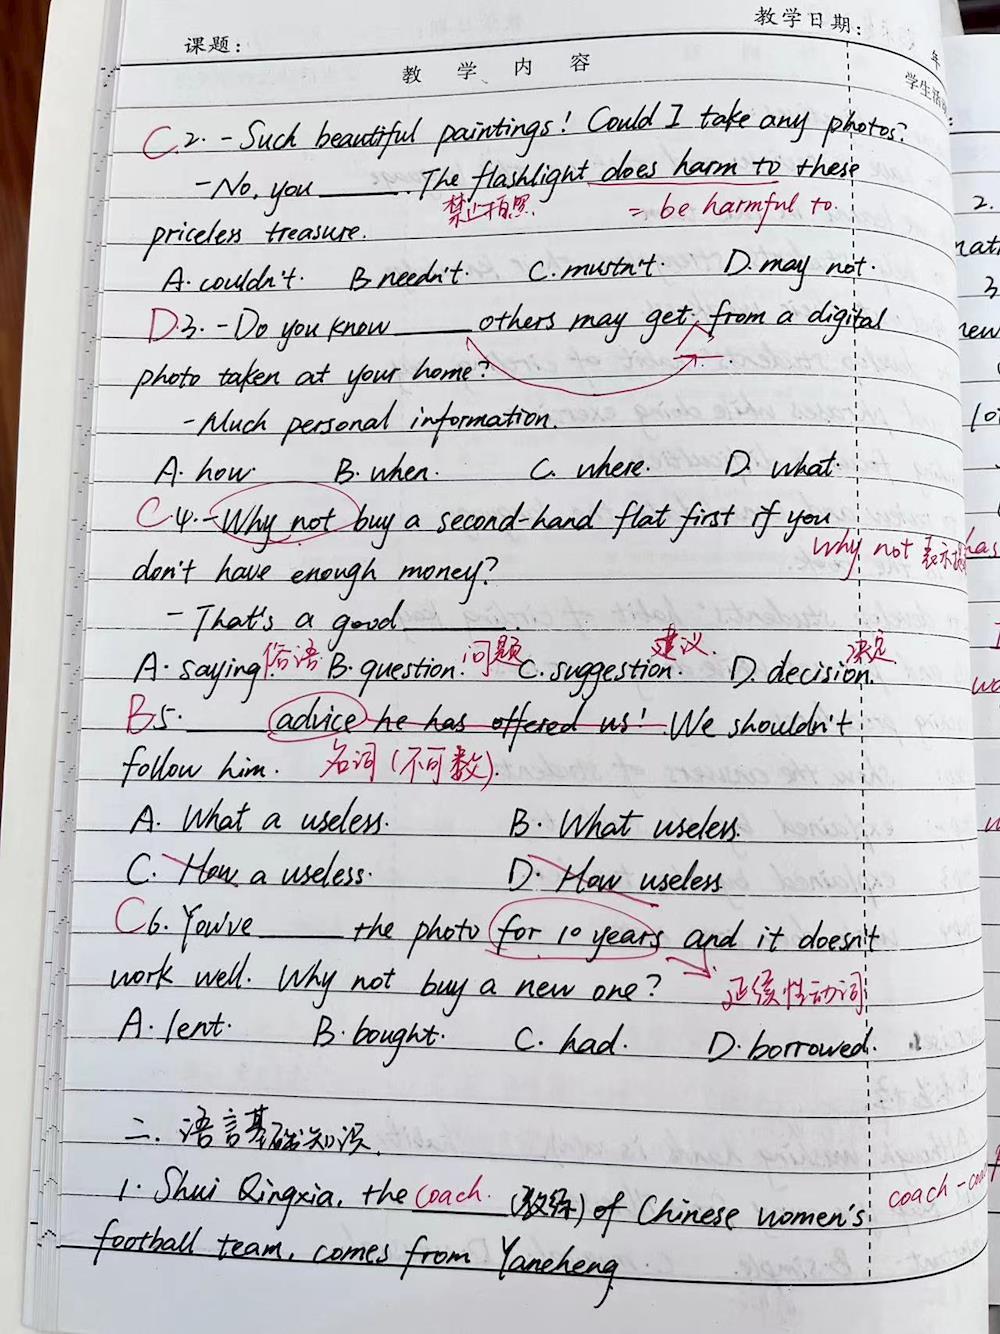 教学日期: 年
课题:
教 学 内 容
学生活
C.2. -Such beautiful paintings! Could I take any photos?
-No, you ______. The flashlight does harm to these
禁止拍照. = be harmful to.
priceless treasure.
A. couldn't. B needn't. C. mustn't. D. may not.
D.3. -Do you know ______ others may get from a digital
photo taken at your home?
-Much personal information.
A. how B. when. C. where. D. what.
C 4. -Why not buy a second-hand flat first if you
why not 表示
don't have enough money?
- That's a good ______.
俗语 问题 建议. 决定
A. saying. B. question. C. suggestion. D. decision.
B5. ______ advice he has offered us! We shouldn't
follow him. 名词(不可数).
A. What a useless. B. What useless.
C. How a useless. D. How useless
C6. You've ______ the photo for 10 years and it doesn't
work well. Why not buy a new one? 延续性动词
A. lent. B. bought. C. had. D. borrowed.
二. 语言基础知识.
1. Shui Qingxia, the coach. (教练) of Chinese women's
coach-
football team, comes from Yancheng
2.
3
has